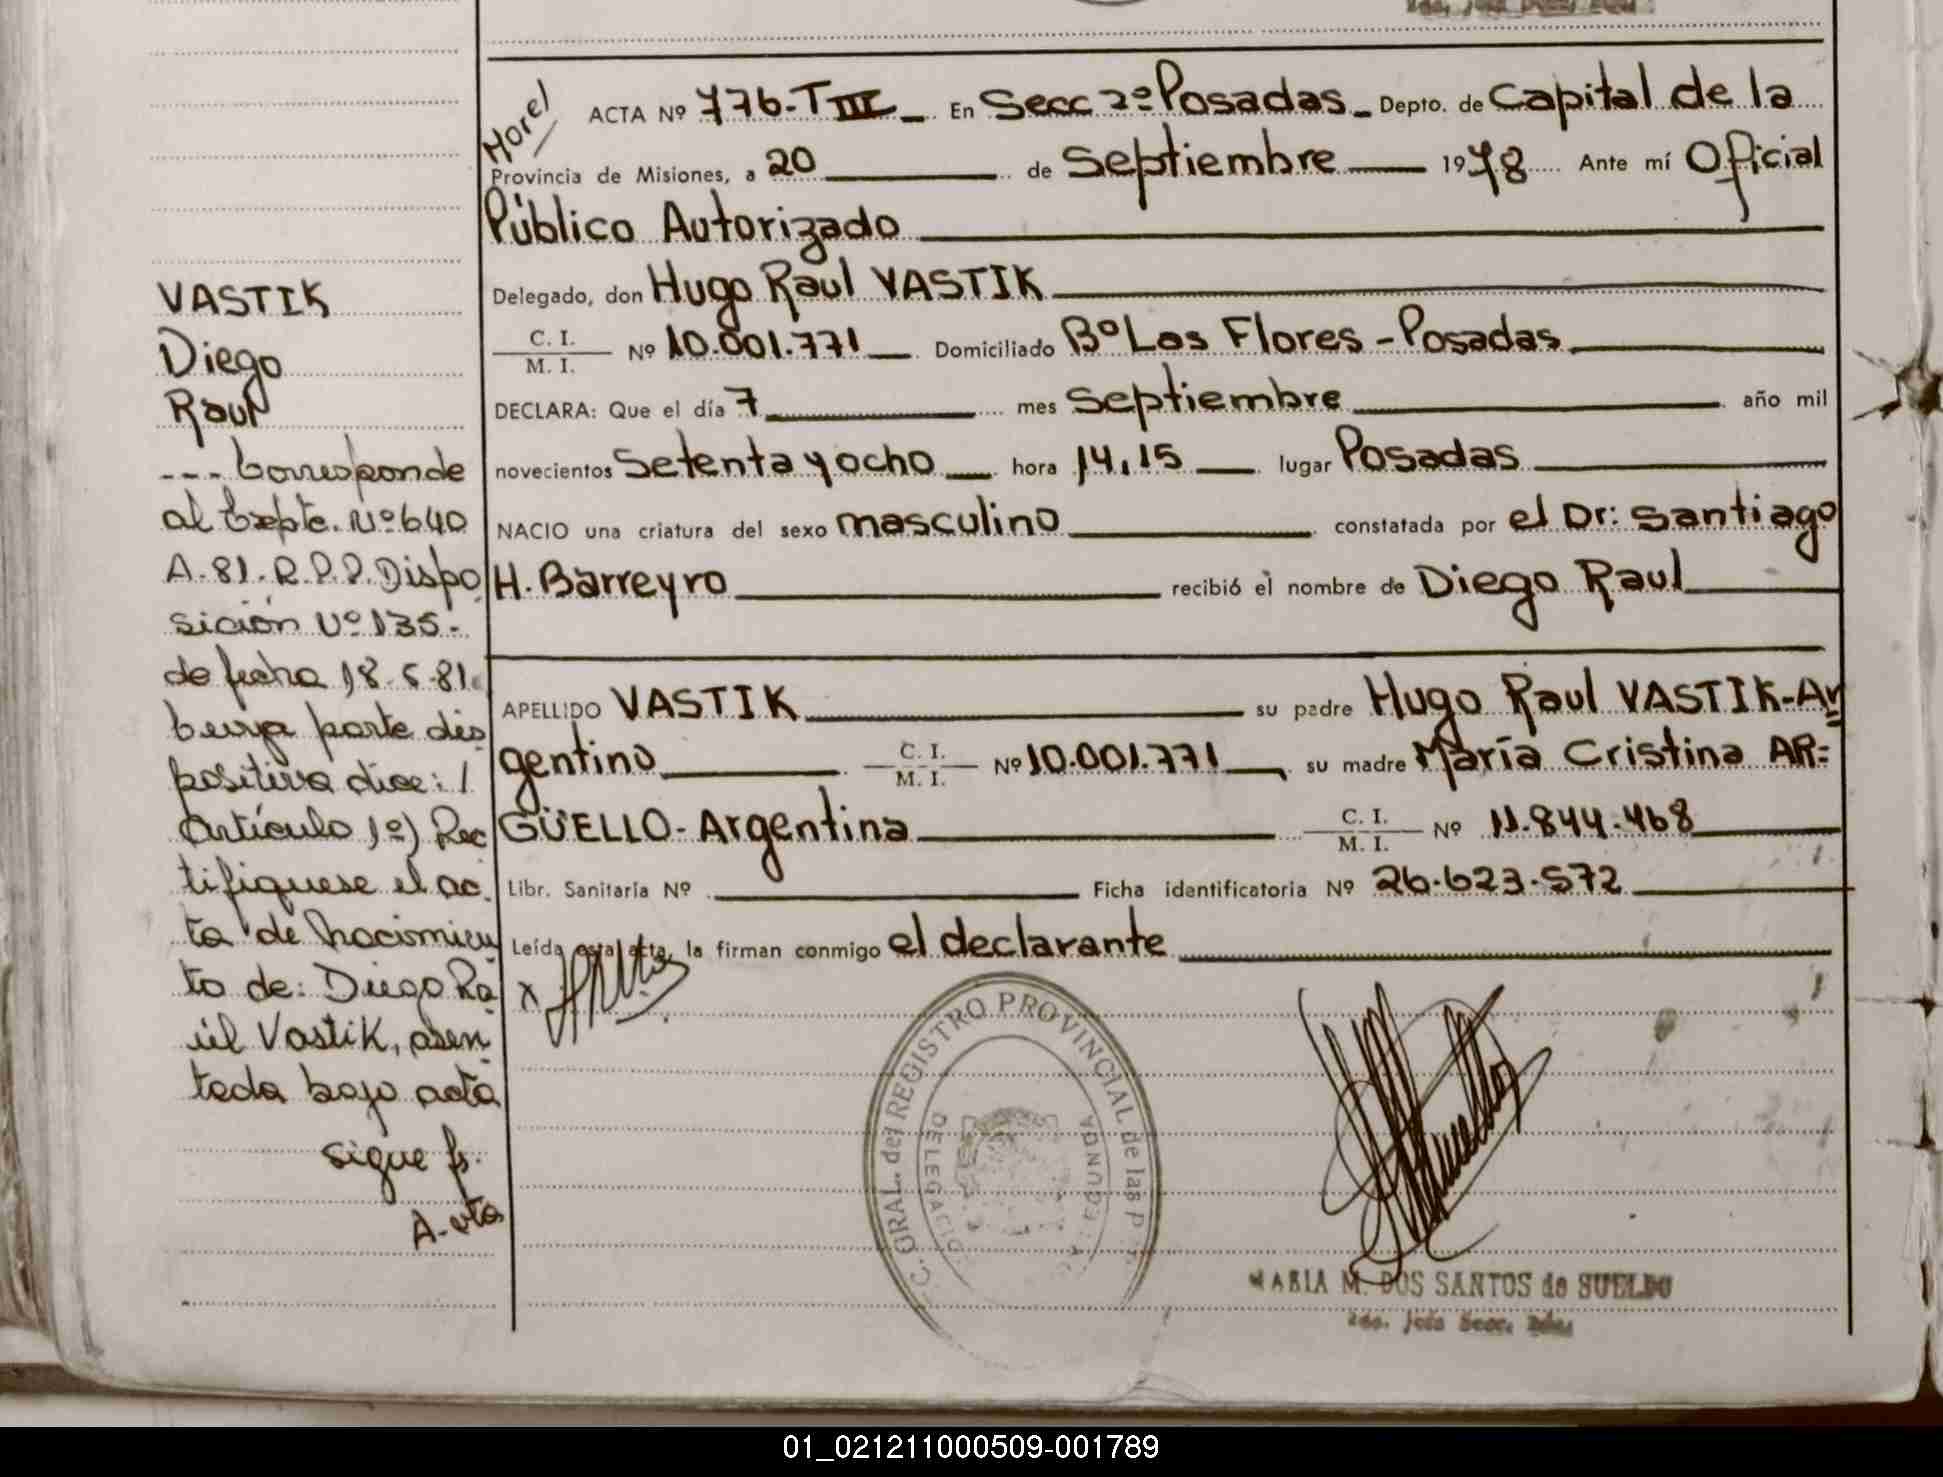 Morel
ACTA Nº 776-T III _ En Secc 2º Posadas _ Depto. de Capital de la
Provincia de Misiones, a 20 de Septiembre 1978 Ante mí Oficial
Público Autorizado
Delegado, don Hugo Raul VASTIK
C. I.
M. I. Nº 10.001.771 Domiciliado Bº Las Flores - Posadas
DECLARA: Que el día 7 mes Septiembre año mil
novecientos Setenta y ocho hora 14,15 lugar Posadas
NACIO una criatura del sexo masculino constatada por el Dr: Santiago
H. Barreyro recibió el nombre de Diego Raul
APELLIDO VASTIK su padre Hugo Raul VASTIK-Ar
gentino C. I.
M. I. Nº 10.001.771 su madre María Cristina AR=
GÜELLO - Argentina C. I.
M. I. Nº 11.844.468
Libr. Sanitaría Nº Ficha identificatoria Nº 26.623.572
Leída esta acta, la firman conmigo el declarante
x
C. GRAL. del REGISTRO PROVINCIAL de las P
DELEGACI SEGUNDA
MARIA M. DOS SANTOS de SUELDO
VASTIK
Diego
Raul
--- Corresponde
al Expte. Nº 640
A-81-R.P.P. Dispo
sición Nº 135-
de fecha 18-5-81.
cuya parte dis
positiva dice: /
Artículo 1º) Rec
tifíquese el ac
ta de nacimien
to de: Diego Ra
úl Vastik, asen
tada bajo acta
sigue fs.
A-vta
01_021211000509-001789